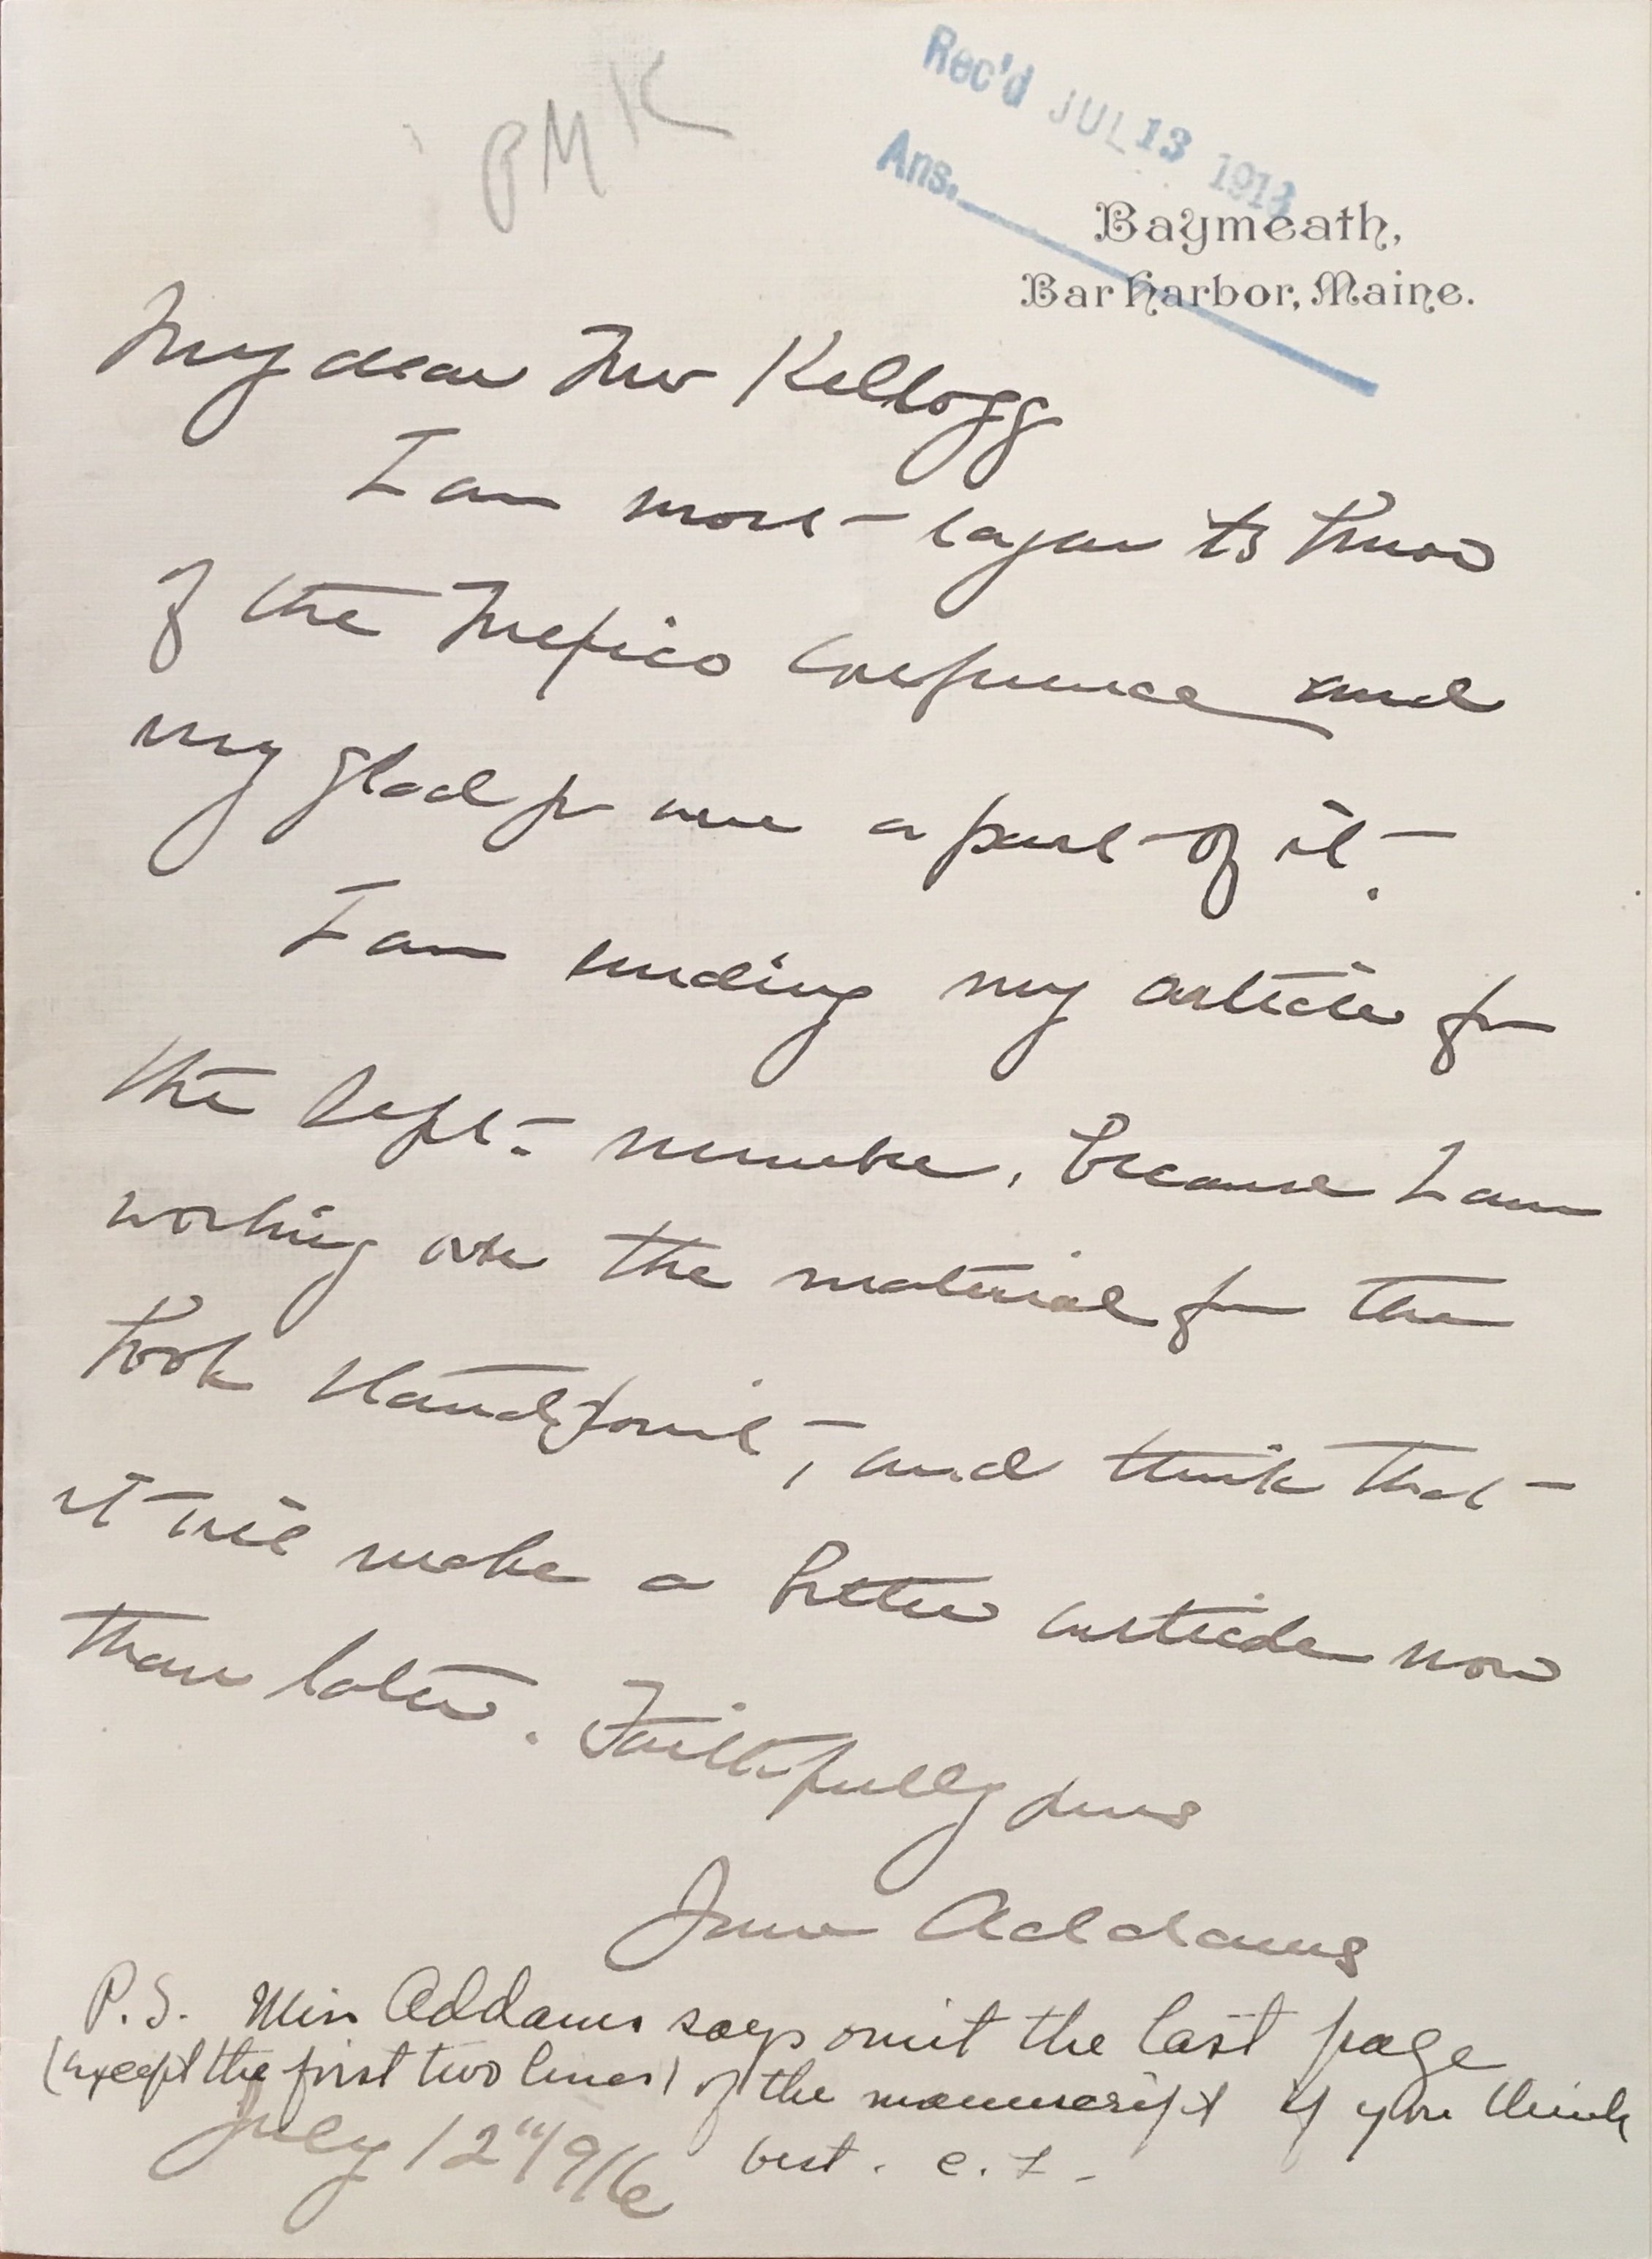 PMK
Rec'd JUL 13 1916
Ans.
Baymeath,
Bar Harbor, Maine.
My dear Mr Kellogg
I am most eager to know
of the Mexico Conference and
very glad for one a part of it.
I am sending my article for
the Sept. number, because I am
working over the material for the
book standpoint, and think that
it will make a better article now
than later. Faithfully yours
Jane Addams
P.S. Miss Addams says omit the last page
(except the first two lines) of the manuscript if you think
July 12" 1916 best. e.